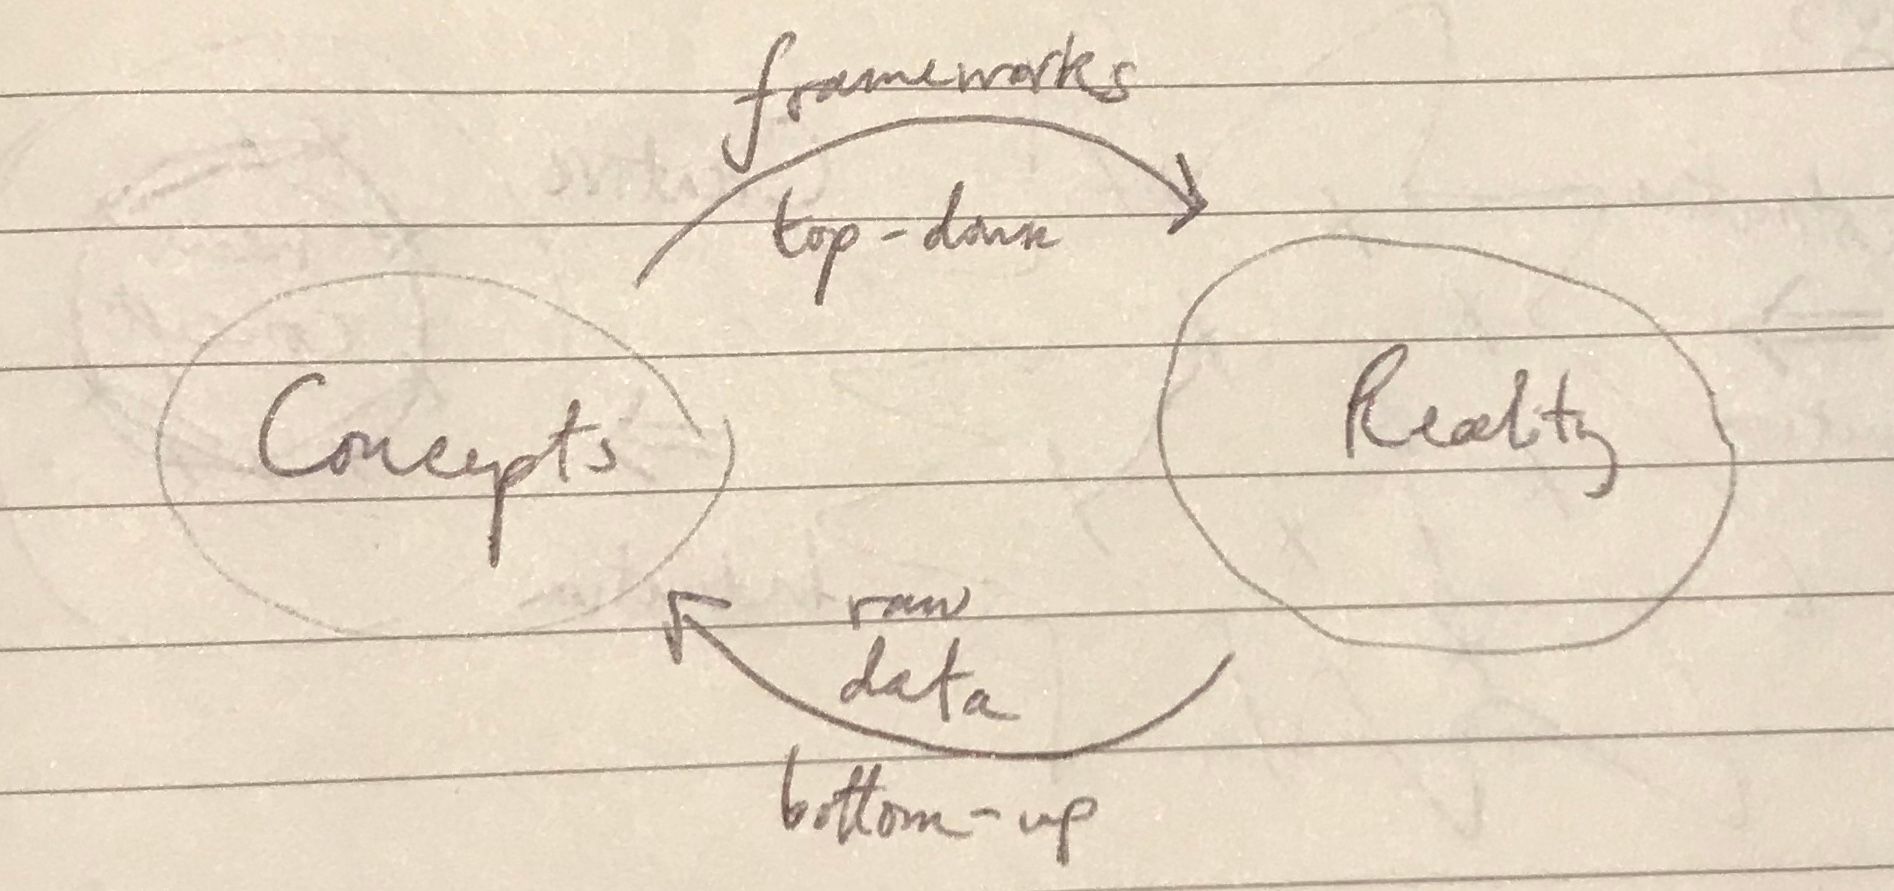 frameworks
top-down
Concepts
Reality
raw
data
bottom-up